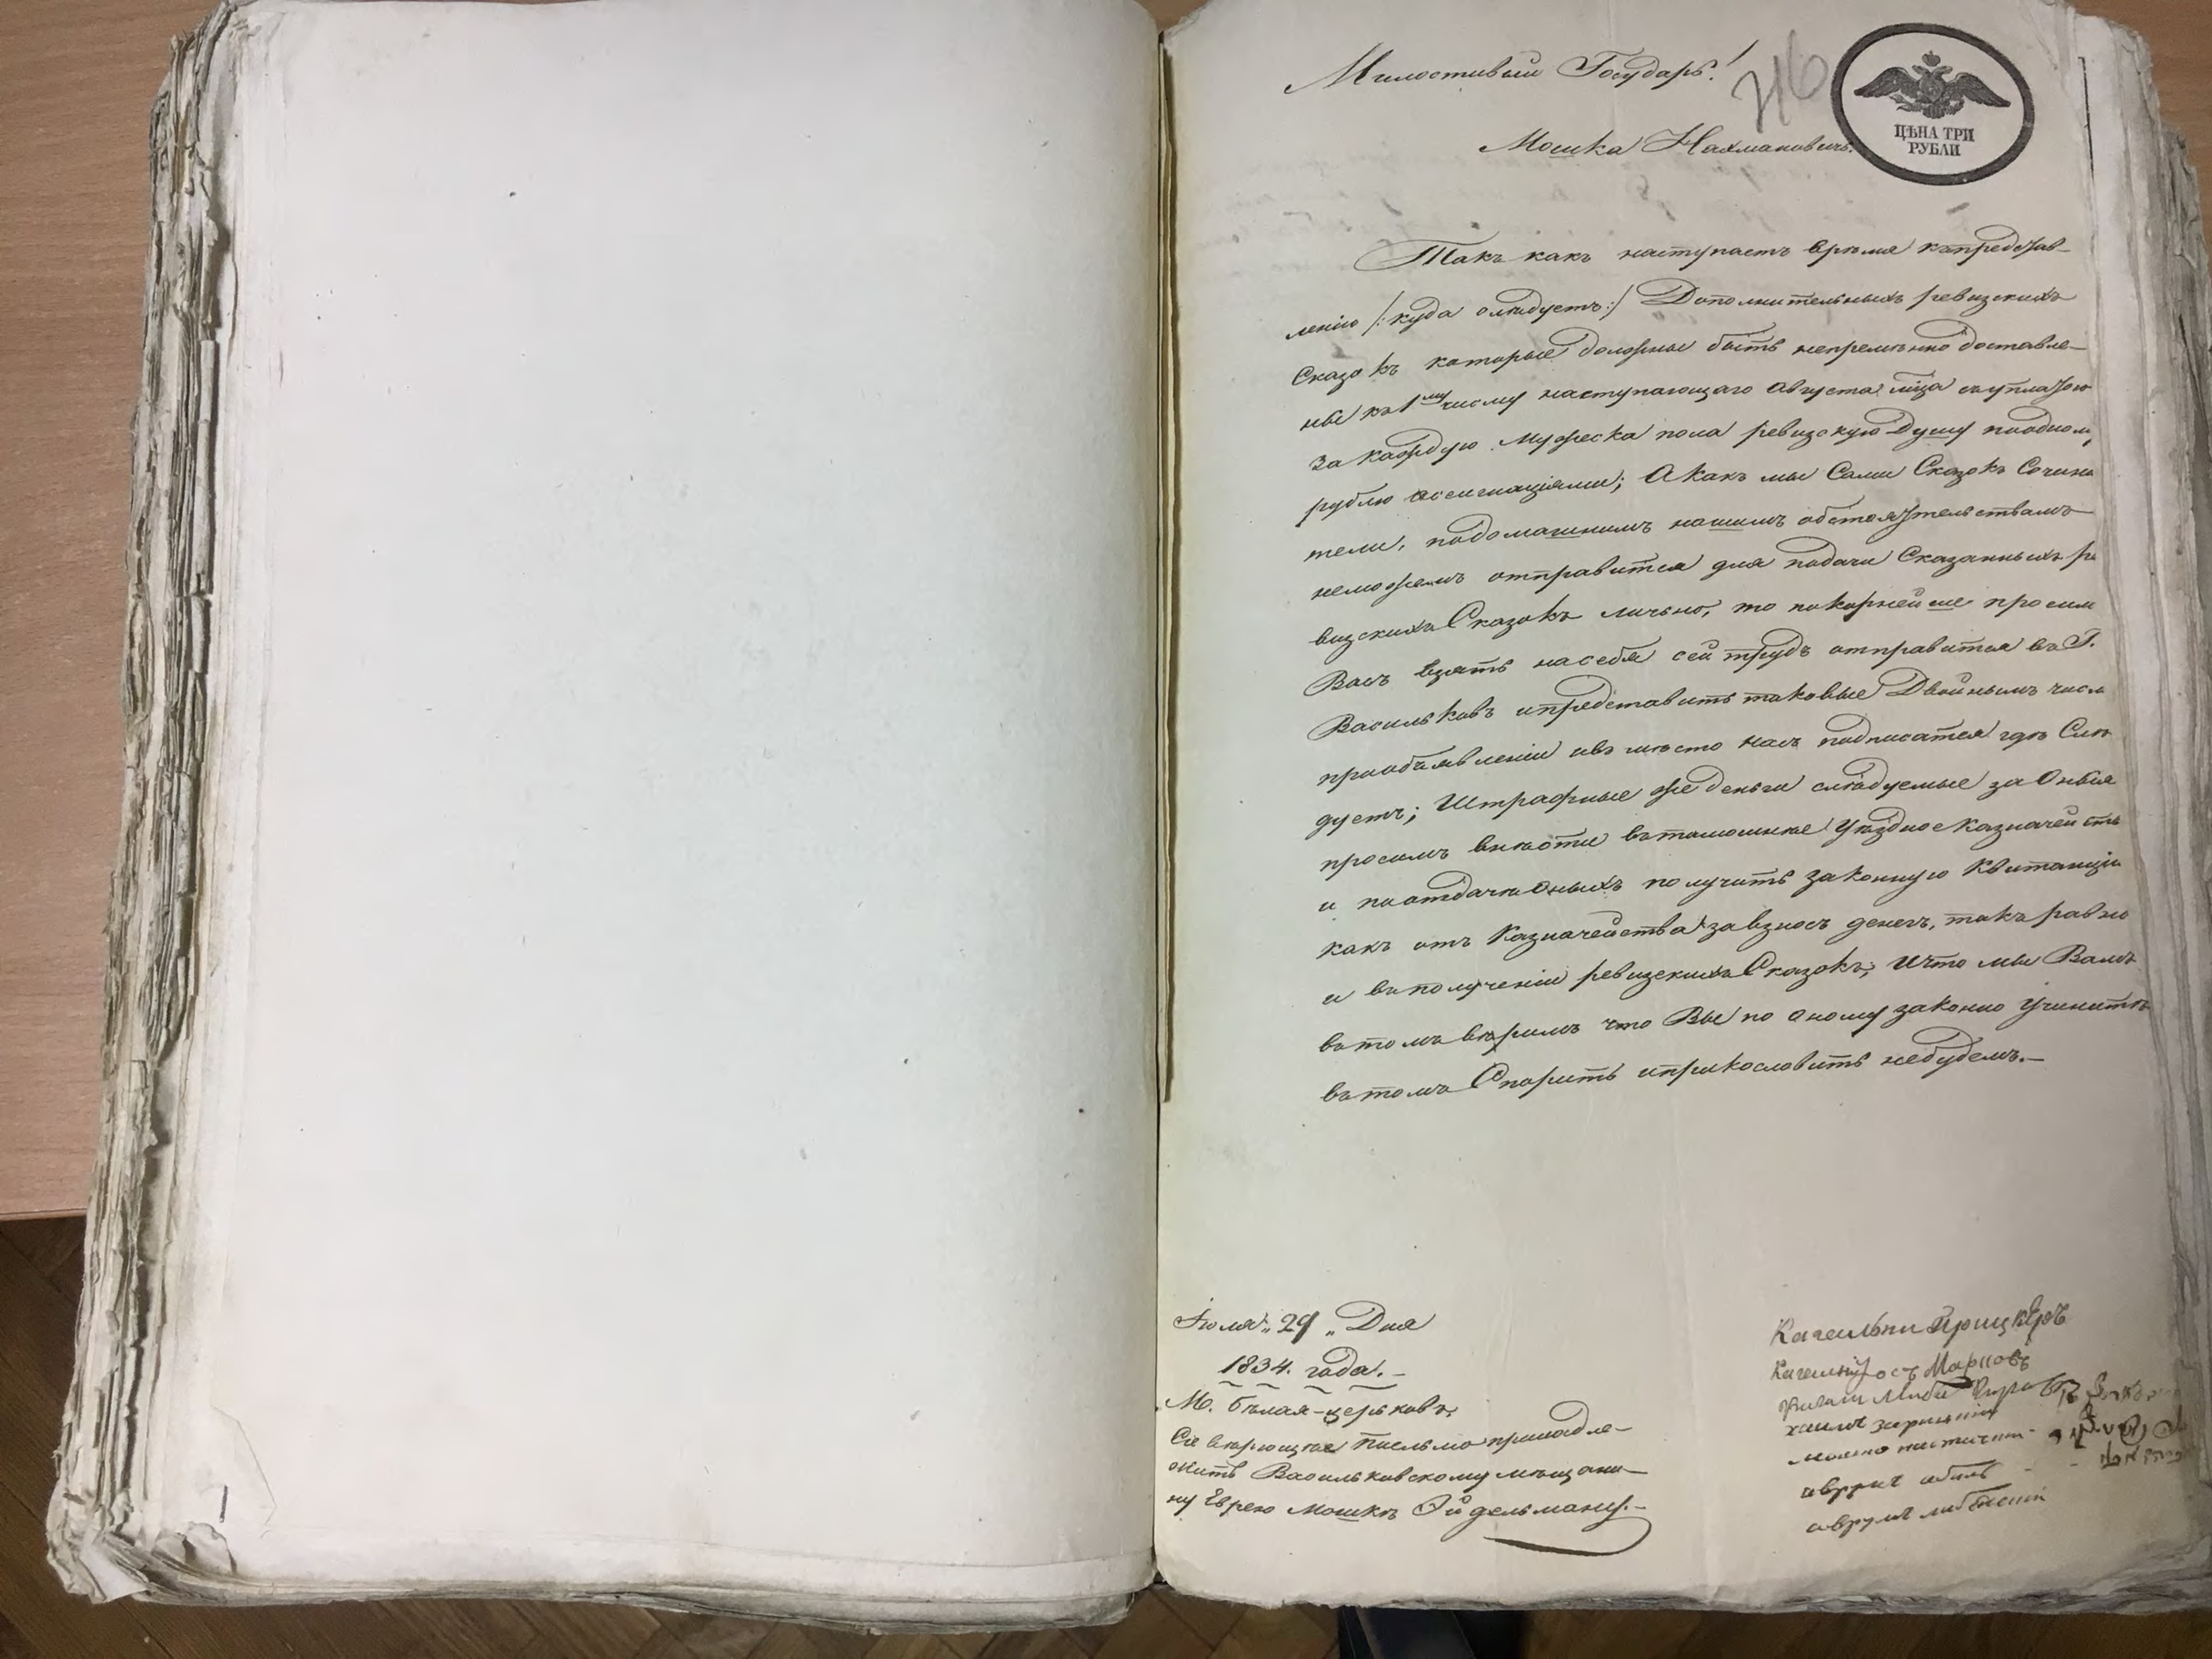 Милостивый Государь!
716
ЦѢНА ТРИ
РУБЛИ
Мошка Нахмановичъ.
Такъ какъ наступаетъ время къпредстав-
ленію /:куда слѣдуетъ:/ Дополнительныхъ ревизскихъ
Сказокъ которые должны быть непремѣнно доставле-
ны къ 1му числу наступающаго Августа мца съуплатою
За каждую Мужеска пола ревизскую Душу поодном,
рублю ассигнаціями; А какъ мы Сами Сказокъ Сочини
тели, подомашнимъ нашимъ обстоятельствамъ
неможемъ отправится для подачи Сказанныхъ ре
визскихъ Сказокъ лично, то покорнейше просим
Васъ взять насебя сей трудъ отправится въ Г.
Васильковъ ипредставить таковые Двойнымъ числ
приобъявленіи ивъ мѣсто насъ подписатся гдѣ Слѣ
дуетъ; Штрафные же деньги слѣдуемые за Оныя
просимъ внѣсти вътамошнее Уѣздное Казначейств
и поотдачи Оныхъ получить законную Квитанцію
какъ отъ Казначейства завзносъ денегъ, такъ равно
и вполученіи ревизскихъ Сказокъ; Ичто мы Вамъ
втомъ вѣримъ что Вы по оному законно Учините
втомъ Спорить ипрекословить небудемъ.—
Іюля „29„ Дня
1834. года. –
М. Бѣлая-церковъ,
Сіе вѣрющее Писльмо принадле-
жить Васильковскому мѣщани-
ну Еврею Мошкѣ Эйдельману.–